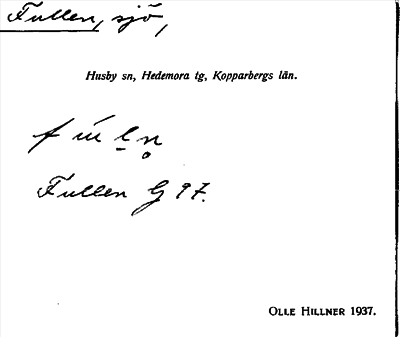 Fullen, sjö,
Husby sn, Hedemora tg, Kopparbergs län.
Fullen G 97.
OLLE HILLNER 1937.